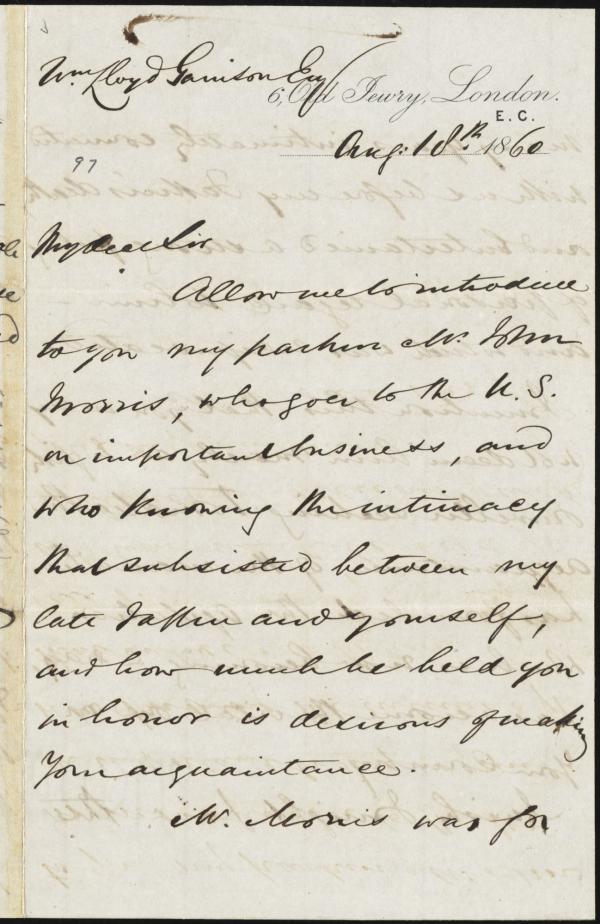 Wm Lloyd Garrison Esq
6, Old Jewry, London.
E. C.
Aug: 18th 1860
97
My dear Sir
Allow me to introduce
to you my partner Mr. John
Morris, who goes to the U. S.
on important business, and
who knowing the intimacy
that subsisted between my
late Father and yourself,
and how much he held you
in honor is desirous of making
your acquaintance.
Mr. Morris was for